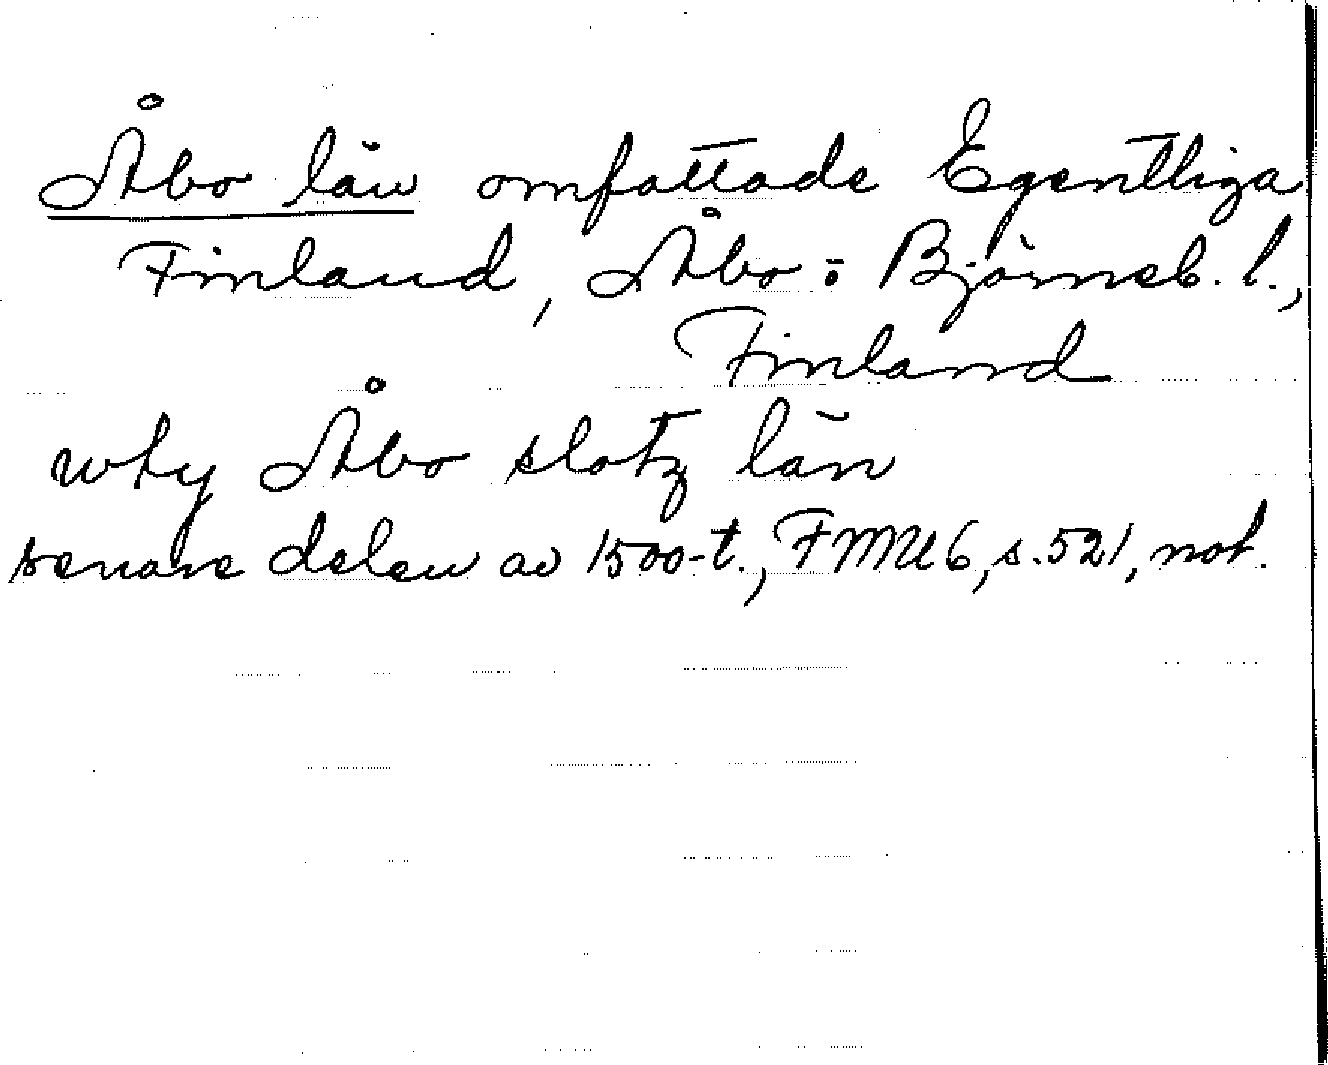 Åbo län omfattade Egentliga
Finland, Åbo o Björneb. l.,
Finland
vthy Åbo slotz län
senare delen av 1500-t., FMU 6, s. 521, not.